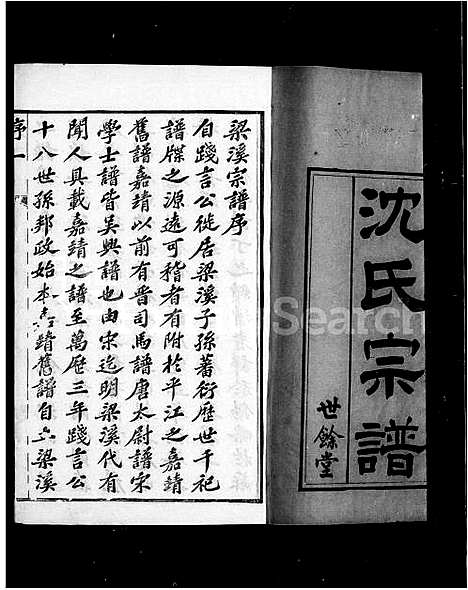 沈氏宗譜
世餘堂
梁溪宗譜序
自踐言公徙居梁溪子孫蕃衍歷世千祀
譜牒之源遠可稽者有附於平江之嘉靖
舊譜嘉靖以前有晉司馬譜唐太尉譜宋
學士譜皆吳興譜也由宋迄明梁溪代有
聞人具載嘉靖之譜至萬歷三年踐言公
十八世孫邦政始本嘉靖舊譜自立梁溪
序一
Search